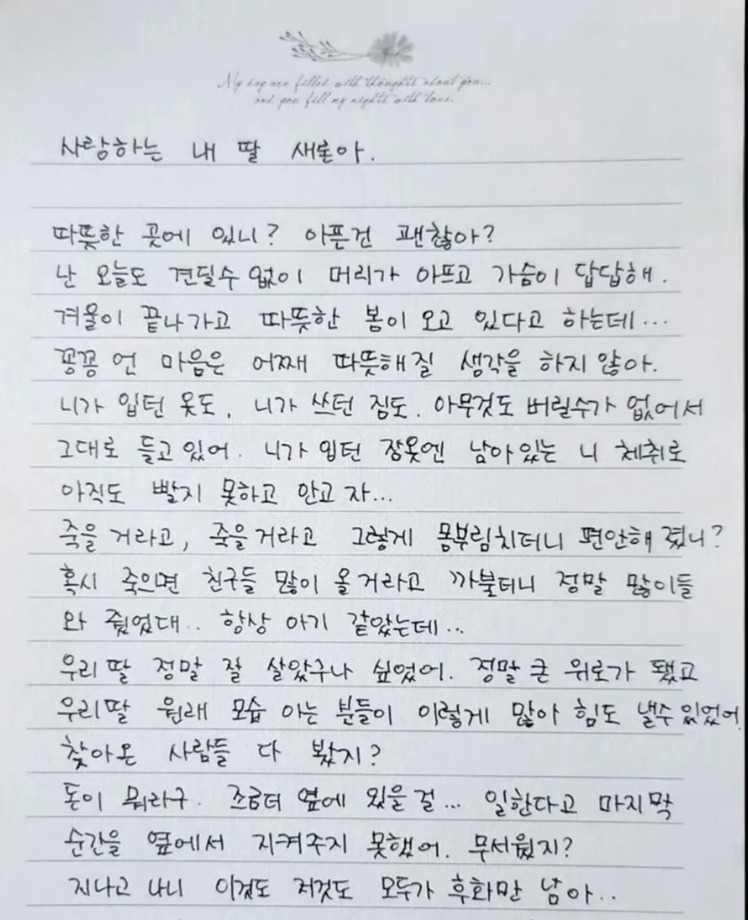 My day are filled with thoughts about you...
and you fill my nights with love.
사랑하는 내 딸 새론아.
따뜻한 곳에 있니? 아픈건 괜찮아?
난 오늘도 견딜수 없이 머리가 아프고 가슴이 답답해.
겨울이 끝나가고 따뜻한 봄이 오고 있다고 하는데...
꽁꽁 언 마음은 어째 따뜻해질 생각을 하지 않아.
니가 입던 옷도, 니가 쓰던 짐도. 아무것도 버릴수가 없어서
그대로 들고 있어. 니가 입던 잠옷엔 남아있는 니 체취로
아직도 빨지 못하고 안고 자...
죽을 거라고, 죽을거라고 그렇게 몸부림치더니 편안해 졌니?
혹시 죽으면 친구들 많이 올거라고 까불더니 정말 많이들
와 줬었대.. 항상 아기 같았는데...
우리 딸 정말 잘 살았구나 싶었어. 정말 큰 위로가 됐고
우리딸 원래 모습 아는 분들이 이렇게 많아 힘도 낼수 있었어
찾아온 사람들 다 봤지?
돈이 뭐라구. 조금더 옆에 있을 걸... 일한다고 마지막
순간을 옆에서 지켜주지 못했어. 무서웠지?
지나고 나니 이것도 저것도 모두가 후회만 남아..